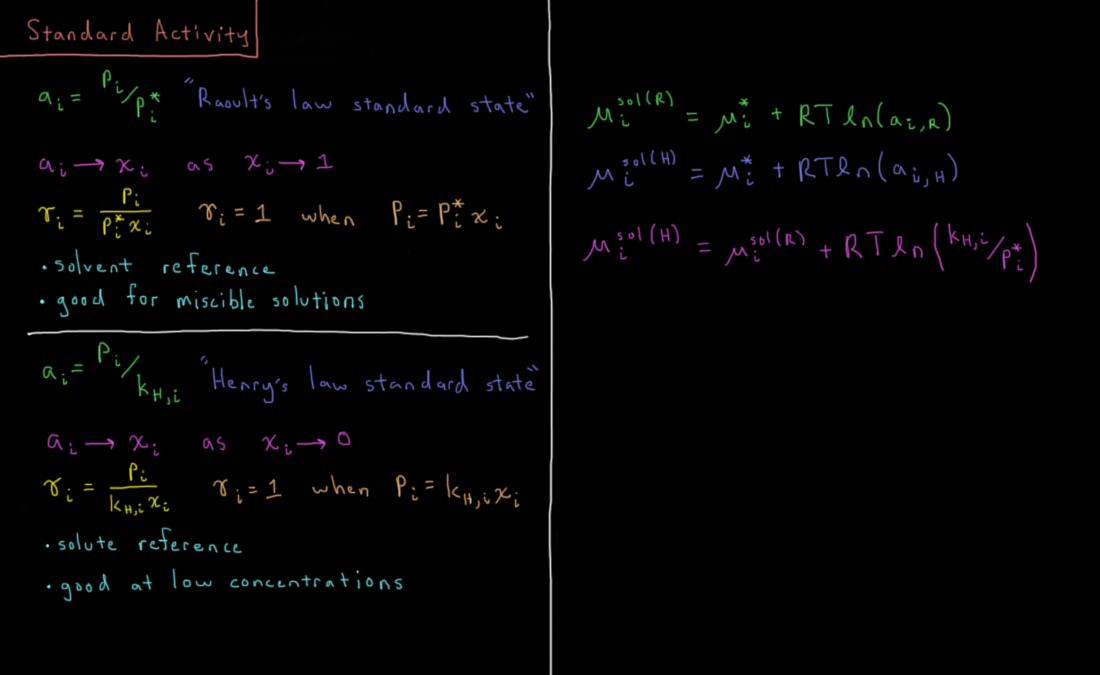 Standard Activity
aᵢ = Pᵢ/Pᵢ* "Raoult's law standard state"
aᵢ → xᵢ as xᵢ → 1
γᵢ = Pᵢ/(Pᵢ* xᵢ) γᵢ = 1 when Pᵢ = Pᵢ* xᵢ
• solvent reference
• good for miscible solutions
aᵢ = Pᵢ/k_{H,i} "Henry's law standard state"
aᵢ → xᵢ as xᵢ → 0
γᵢ = Pᵢ/(k_{H,i} xᵢ) γᵢ = 1 when Pᵢ = k_{H,i} xᵢ
• solute reference
• good at low concentrations
μᵢ^{sol(R)} = μᵢ* + RT ln(a_{i,R})
μᵢ^{sol(H)} = μᵢ* + RT ln(a_{i,H})
μᵢ^{sol(H)} = μᵢ^{sol(R)} + RT ln(k_{H,i}/Pᵢ*)